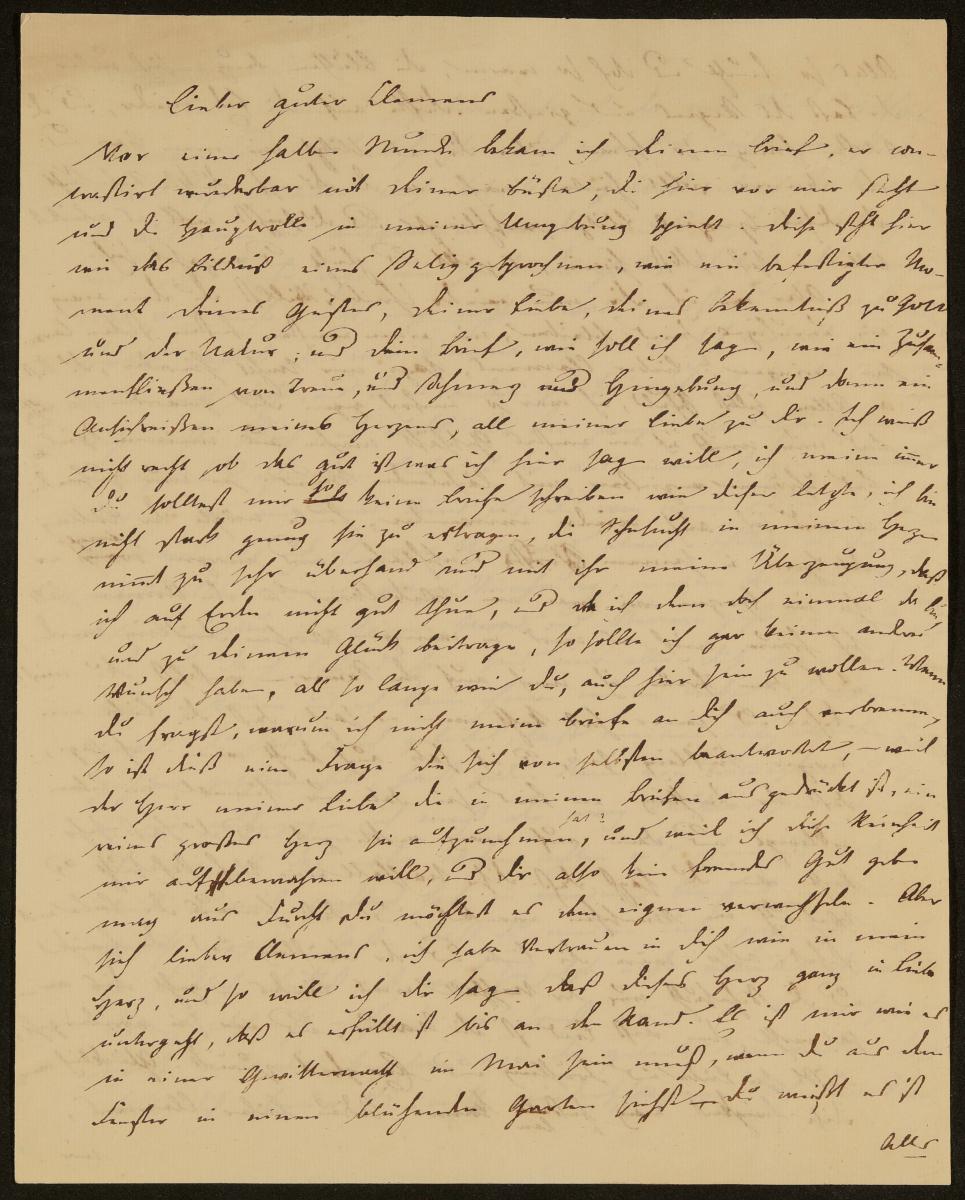 Lieber guter Clemens
Vor einer halben Stunde bekam ich deinen Brief, er con-
trastirt wunderbar mit deiner Büste, die hier vor mir steht
und die Hauptrolle in meiner Umgebung spielt. diese steht hier
wie das Bildniß eines Seliggesprochnen, wie ein befestigter Mo-
ment deines Geistes, deiner Liebe, deines Bekenntniß zu Gott
und der Natur; und dein Brief, wie soll ich sagen, wie ein Zusam-
menfließen von Treue, und Schmerz und Hingebung, und dann ein
Ansichreißen meines Herzens, all meiner Liebe zu dir. Ich weiß
nicht recht, ob das gut ist was ich hier sagen will, ich meine immer
du solltest mir so keine Briefe schreiben wie dieser letzte, ich bin
nicht stark genug sie zu ertragen, die Sehnsucht in meinem Herzen
nimmt zu sehr überhand und mit ihr meine Überzeugung, daß
ich auf Erden nicht gut thue, und da ich denn doch einmal da bin,
und zu deinem Glück beitrage, so sollte ich gar keinen andern
Wunsch haben, als so lange wie du, auch hier sein zu wollen. Wenn
du fragst, warum ich nicht meine Briefe an dich auch verbrenne,
so ist dieß eine Frage die sich von selbsten beantwortet, – weil
der Herr meiner Liebe die in meinen Briefen ausgedrückt ist, ein
reines großes Herz sie aufzunehmen, hat? und weil ich diese Reinheit
mir aufbewahren will, und dir also kein fremdes Gut geben
mag aus Furcht du möchtest es dem eignen verwechseln. Aber
sieh lieber Clemens, ich habe Vertrauen in dich wie in mein
Herz, und so will ich dir sagen daß dieses Herz ganz in Liebe
untergeht, daß es erfüllt ist bis an den Rand. Es ist mir wie es
in einer Gewitternacht im Mai sein muß, wenn du aus dem
Fenster in einen blühenden Garten siehst – du weißt es ist
Alles